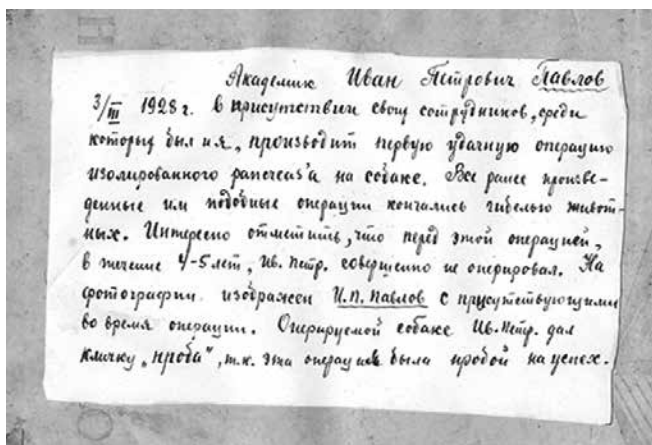 Академик Иван Петрович Павлов
3/III 1928 г. в присутствии своих сотрудников, среди
которых был и я, производит первую удачную операцию
изолированного panсreas'а на собаке. Все ранее произве-
денные им подобные операции кончались гибелью живот-
ных. Интересно отметить, что перед этой операцией,
в течение 4-5 лет, Ив. Петр. совершенно не оперировал. На
фотографии изображен И.П. Павлов с присутствующими
во время операции. Оперируемой собаке Ив. Петр. дал
кличку „проба", т.к. эта операция была пробой на успех.